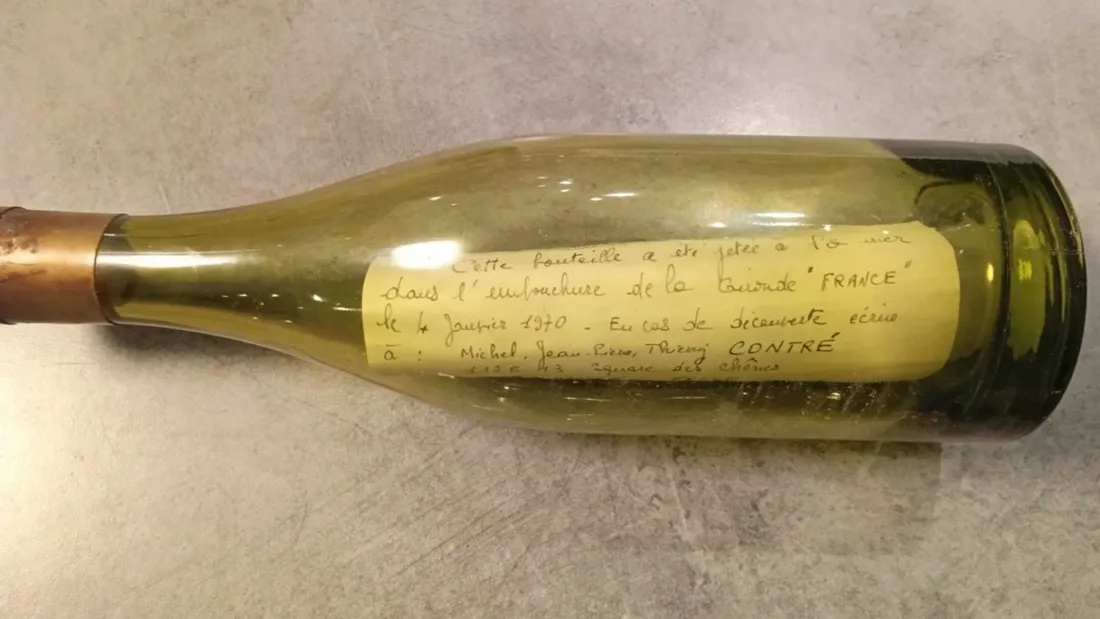 Cette bouteille a été jetée à la mer
dans l'embouchure de la Gironde "FRANCE"
le 4 Janvier 1970 . En cas de découverte écrire
à : Michel, Jean-Pierre, Thierry CONTRÉ
Square des Chênes